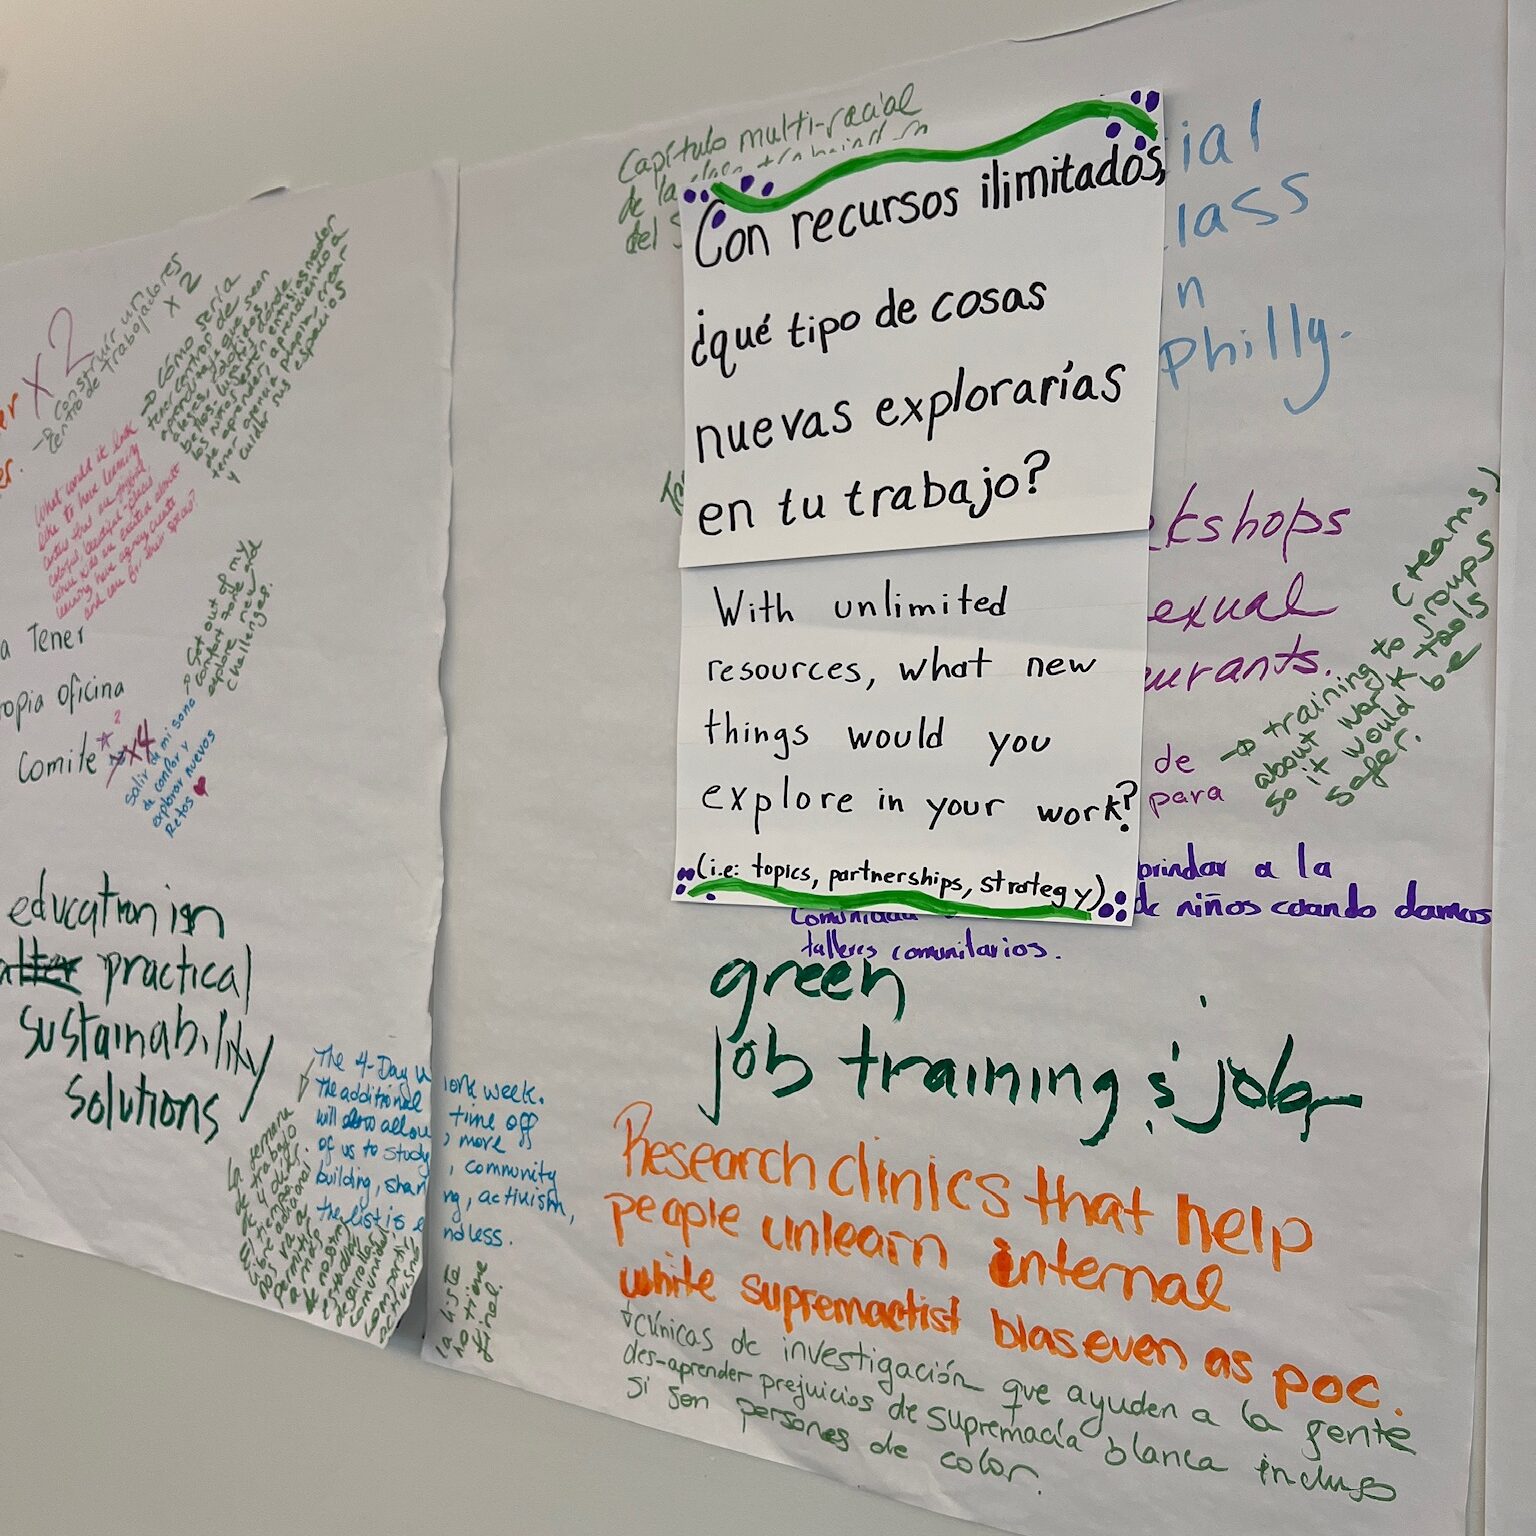 x 2
Construir un
centro de trabajadores
x 2
Cómo sería
tener centros de
aprendizaje que sean
alegres, coloridos,
bellos - lugares donde
los niños estén emosionados
de aprender, aprendiendo a
tener agencia propia, crear
y cuidar sus espacios
What would it look
like to have learning
centers that are joyful,
colorful, beautiful - places
where kids are excited about
learning, have agency, create
and care for their space?
Get out of my
comfort zone and
explore new
challenges.
a Tener
oficina
Comite x2 x4
salir de mi zona
de confor y
explorar nuevos
Retos
education in
practical
sustainability
solutions
The 4-Day work week.
The additional time off
will allow more
of us to study, community
building, sharing, activism,
the list is endless.
La semana
de trabajo
de 4 días.
El tiempo
libre adicional
nos va a
permitir
a más
de nosotrxs
estudiar,
desarrollar
comunidad,
compartir,
activismo
la lista
no tiene
final.
Capítulo multi-racial
de la clase trabajadora
del S
ial
lass
n
Philly.
Con recursos ilimitados,
¿qué tipo de cosas
nuevas explorarías
en tu trabajo?
With unlimited
resources, what new
things would you
explore in your work?
(i.e: topics, partnerships, strategy)
kshops
exual
urants.
training to (teams,
about work groups
so it would tools
safer. be
de
para
brindar a la
comunidad de niños cuando damos
talleres comunitarios.
green
job training & jobs
Research clinics that help
people unlearn internal
white supremactist bias even as poc.
+clínicas de investigación que ayuden a la gente
des-aprender prejuicios de supremacía blanca incluso
si son personas de color.